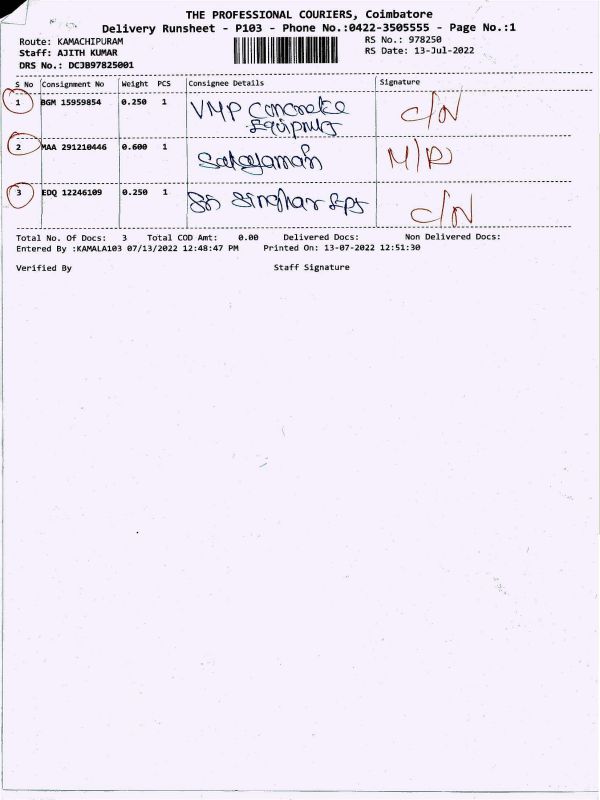 THE PROFESSIONAL COURIERS, Coimbatore
Delivery Runsheet - P103 - Phone No.:0422-3505555 - Page No.:1
Route: KAMACHIPURAM RS No.: 978250
Staff: AJITH KUMAR RS Date: 13-Jul-2022
DRS No.: DCJB97825001
S No Consignment No Weight PCS Consignee Details Signature
1 BGM 15959854 0.250 1 VMP Concrete C/N
Equipment
2 MAA 291210446 0.600 1 M/R
3 EDQ 12246109 0.250 1 Sri C/N
Total No. Of Docs: 3 Total COD Amt: 0.00 Delivered Docs: Non Delivered Docs:
Entered By :KAMALA103 07/13/2022 12:48:47 PM Printed On: 13-07-2022 12:51:30
Verified By Staff Signature